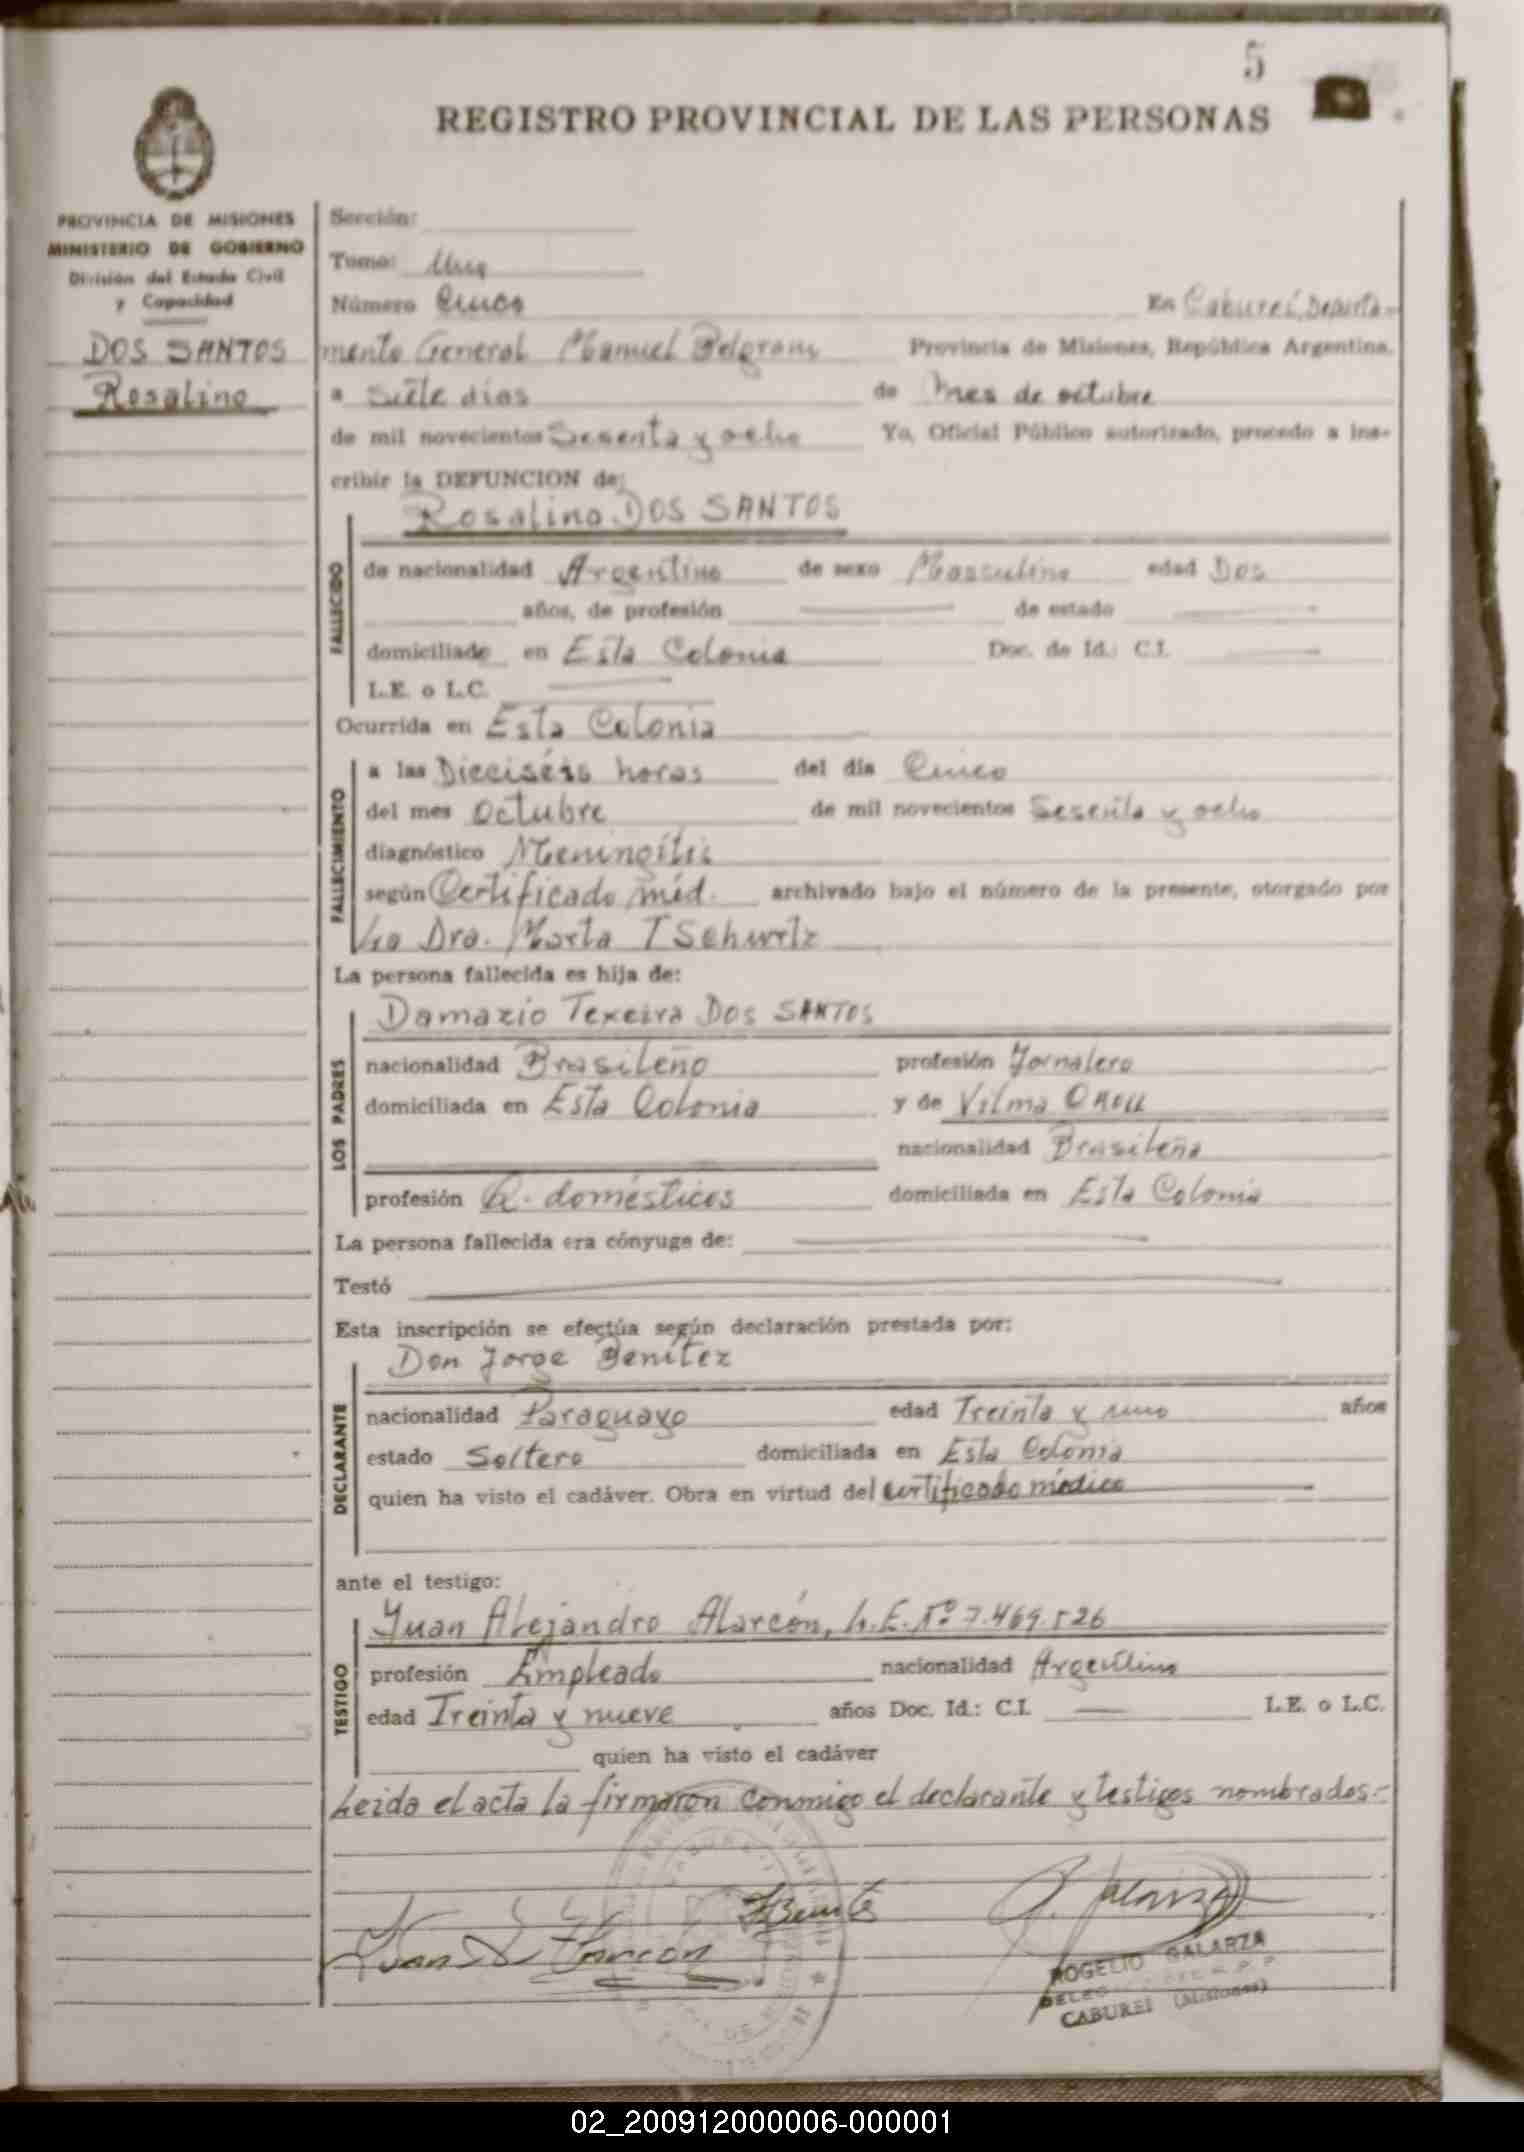 5
REGISTRO PROVINCIAL DE LAS PERSONAS
PROVINCIA DE MISIONES
MINISTERIO DE GOBIERNO
División del Estado Civil
y Capacidad
DOS SANTOS
Rosalino
Sección:
Tomo: Uno
Número Cinco En Cabureí, Departa-
mento General Manuel Belgrano Provincia de Misiones, República Argentina,
a siete días de mes de octubre
de mil novecientos Sesenta y ocho Yo, Oficial Público autorizado, procedo a ins-
cribir la DEFUNCION de:
Rosalino DOS SANTOS
FALLECIDO
de nacionalidad Argentino de sexo Masculino edad Dos
años, de profesión de estado
domiciliado en Esta Colonia Doc. de Id.: C.I.
L.E. o L.C.
Ocurrida en Esta Colonia
FALLECIMIENTO
a las Dieciséis horas del día Cinco
del mes Octubre de mil novecientos Sesenta y ocho
diagnóstico Meningítis
según Certificado méd. archivado bajo el número de la presente, otorgado por
La Dra. Marta
La persona fallecida es hija de:
LOS PADRES
Damazio Texeira DOS SANTOS
nacionalidad Brasileño profesión Jornalero
domiciliada en Esta Colonia y de Vilma
nacionalidad Brasileña
profesión Q. domésticos domiciliada en Esta Colonia
La persona fallecida era cónyuge de:
Testó
Esta inscripción se efectúa según declaración prestada por:
DECLARANTE
Don Jorge Benítez
nacionalidad Paraguayo edad Treinta y uno años
estado Soltero domiciliada en Esta Colonia
quien ha visto el cadáver. Obra en virtud del certificado médico
ante el testigo:
TESTIGO
Juan Alejandro Alarcón, L.E. Nº 7.469.526
profesión Empleado nacionalidad Argentino
edad Treinta y nueve años Doc. Id.: C.I. L.E. o L.C.
quien ha visto el cadáver
Leida el acta la firmaron conmigo el declarante y testigos nombrados.-
Juan A. Alarcón
JBenítez
R. Galarza
ROGELIO GALARZA
CABUREI (Misiones)
02_200912000006-000001